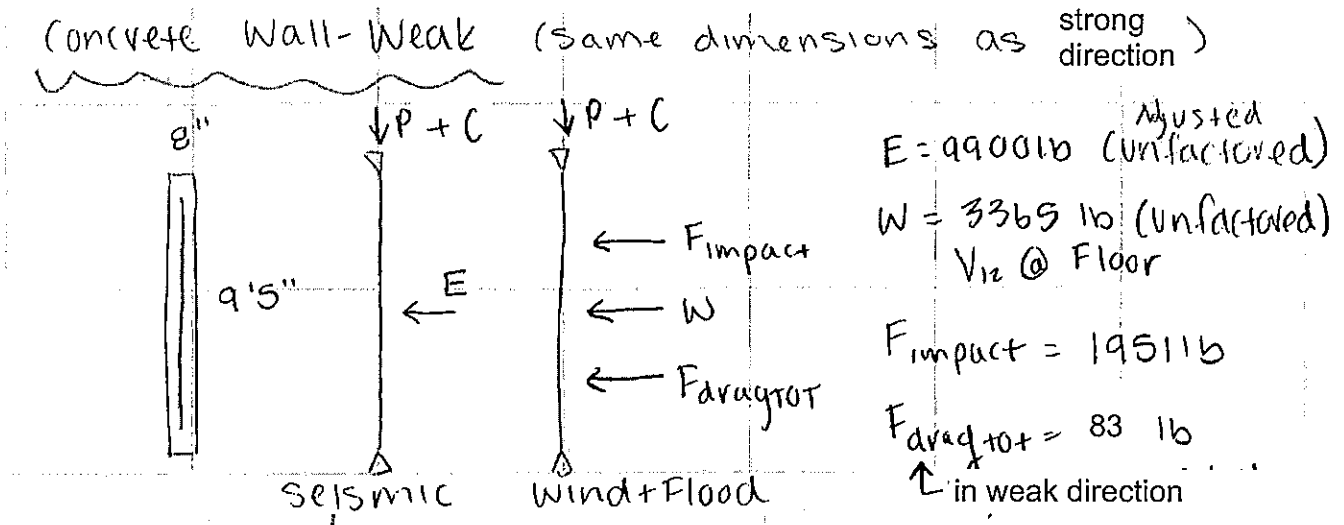 Concrete Wall-Weak (same dimensions as strong direction)
8"
9'5"
P + C
E
seismic
P + C
Fimpact
W
FdragTOT
Wind+Flood
Adjusted
E = 9900 lb (unfactored)
W = 3365 lb (unfactored)
V12 @ Floor
Fimpact = 1951 lb
Fdragtot = 83 lb
in weak direction